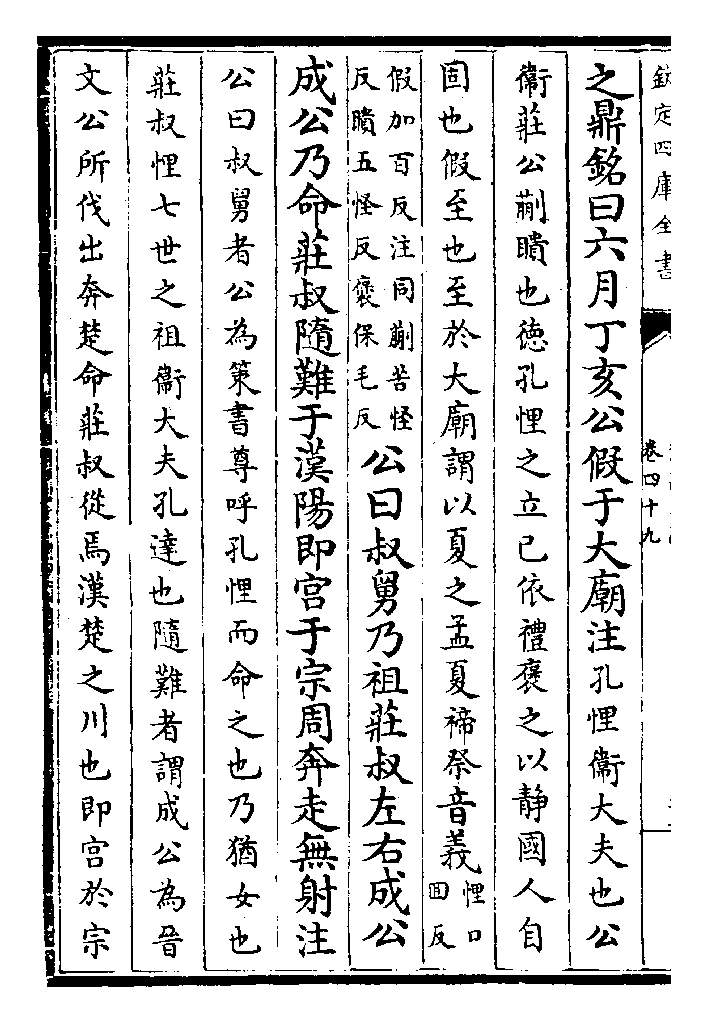 欽定四庫全書
卷四十九
之鼎銘曰六月丁亥公假于大廟注孔悝衞大夫也公
衞莊公蒯聵也徳孔悝之立已依禮褒之以静國人自
固也假至也至於大廟謂以夏之孟夏禘祭音義悝口回反
假加百反注同蒯苦怪反聵五怪反褒保毛反公曰叔舅乃祖莊叔左右成公
成公乃命莊叔隨難于漢陽即宫于宗周奔走無射注
公曰叔舅者公為策書尊呼孔悝而命之也乃猶女也
莊叔悝七世之祖衞大夫孔達也隨難者謂成公為晉
文公所伐出奔楚命莊叔從焉漢楚之川也即宫於宗